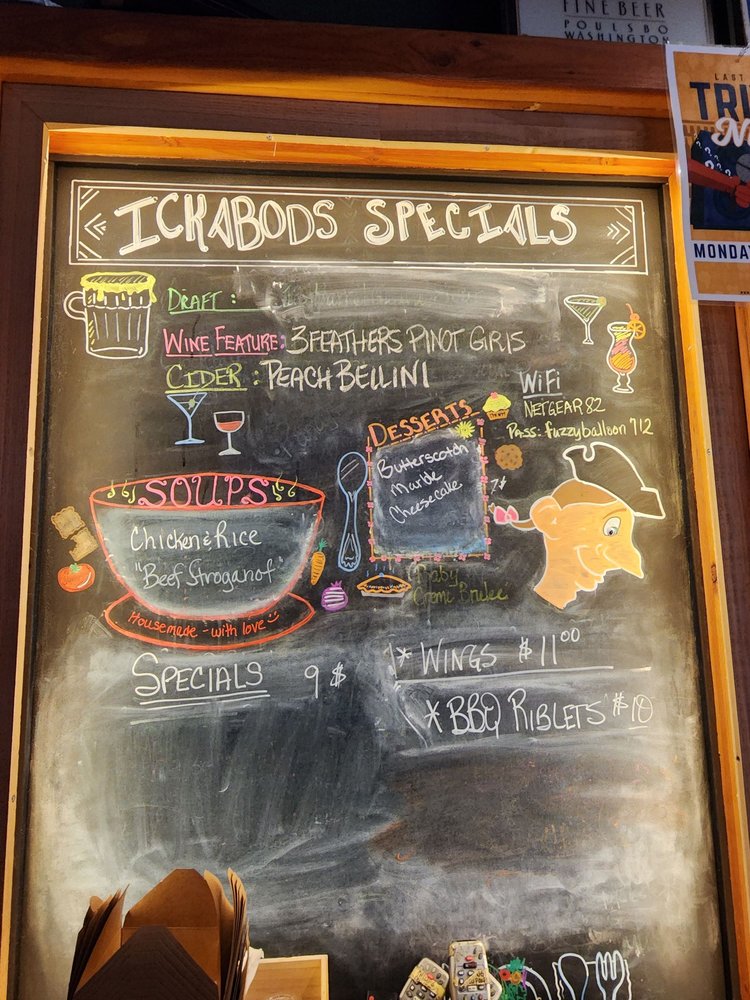 FINE BEER
POULSBO
WASHINGTON
LAST
TRI
MONDAY
ICKABODS SPECIALS
DRAFT:
WINE FEATURE: 3FEATHERS PINOT GRIS
CIDER: PEACH BELLINI
WiFi
NETGEAR82
PASS: fuzzyballoon712
DESSERTS
Butterscotch
Marble
Cheesecake
7$
Baby
Creme Brulee
SOUPS
Chicken & Rice
"Beef Stroganof"
Housemade - with love
SPECIALS 9$
* WINGS $11.00
* BBQ RIBLETS $10